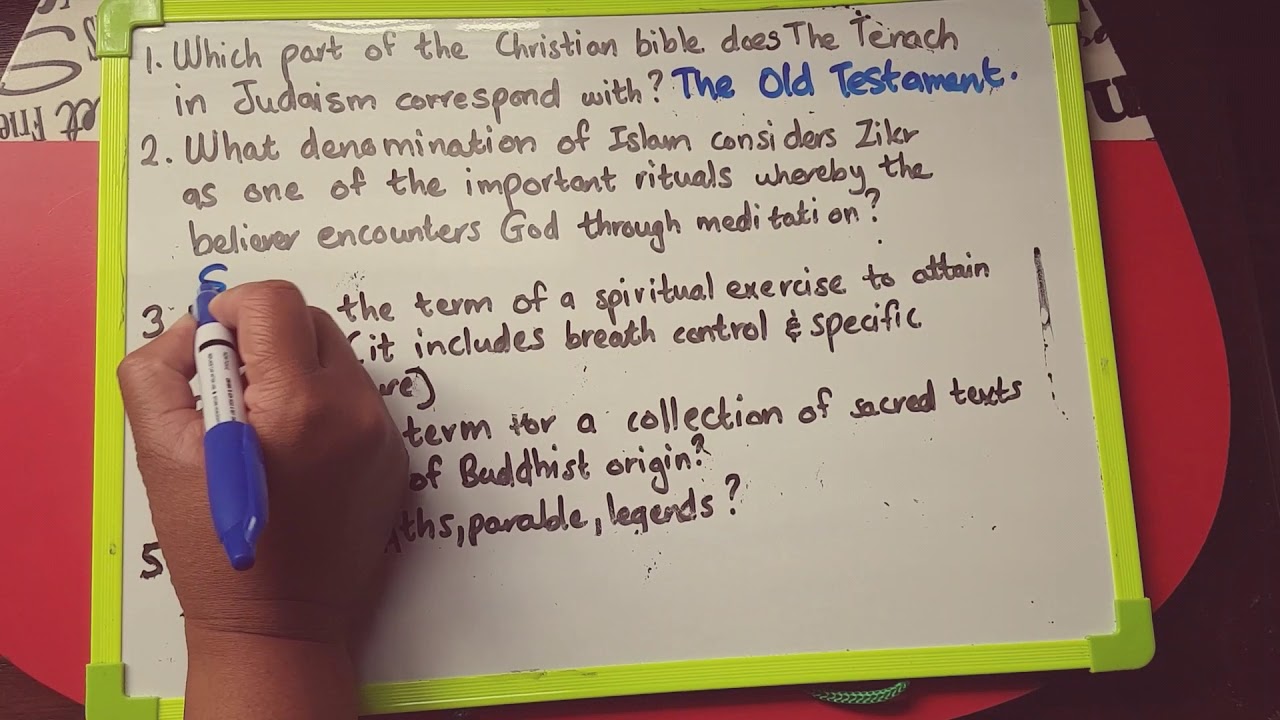 1. Which part of the Christian bible does The Tenach
in Judaism correspond with? The Old Testament.
2. What denomination of Islam considers Zikr
as one of the important rituals whereby the
believer encounters God through meditation?
S
3 the term of a spiritual exercise to attain
(it includes breath control & specific
ure)
term for a collection of sacred texts
of Buddhist origin?
5 yths, parable, legends?